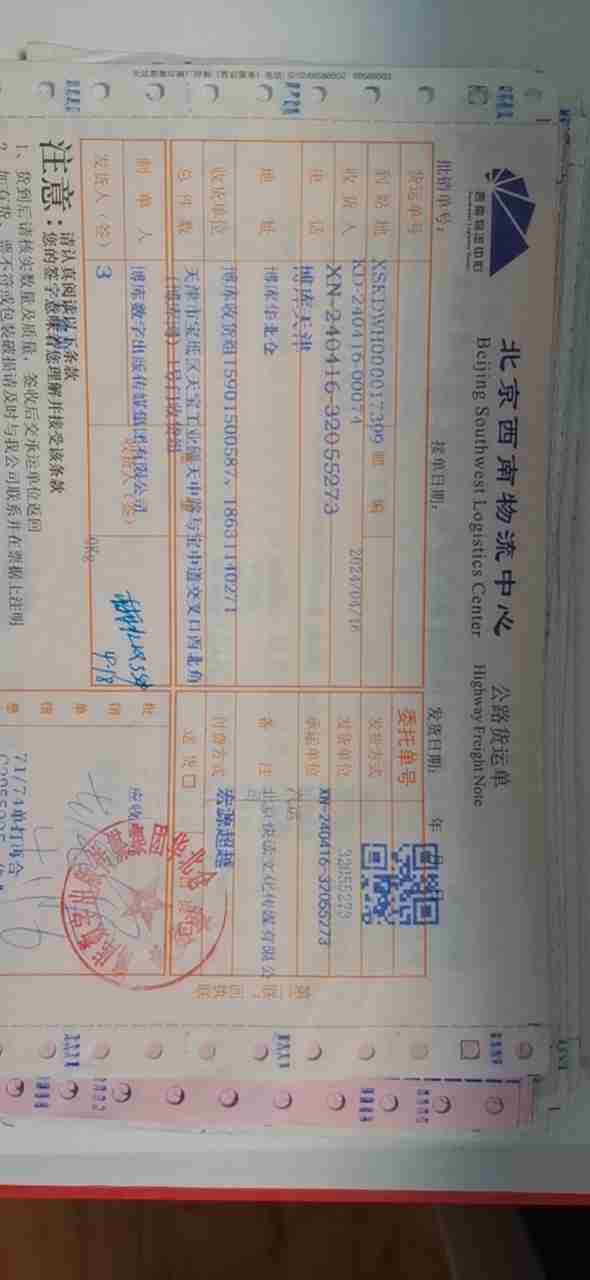 西南物流中心
北京西南物流中心 公路货运单
Beijing Southwest Logistics Center Highway Freight Note
批销单号: 接单日期: 发货日期: 年
货运单号 委托单号
到站地 XSKDWH000017309 邮编 发货方式
收货人 XD-240416-00074 2024/04/16 发货单位 32055273
电话 XN-240416-32055273 承运单位 XN-240416-32055273
博库天津 汽运
地址 博库华北仓 备注 北京快读文化传媒有限公司
收货单位 博库收货组15901500587、18631140271 付费方式 宏源超越
总件数 天津市宝坻区天宝工业园天中路与宝中道交叉口西北角 送货口
制单人 博库数字出版传媒集团有限公司 收货人(签) 批 应收
发货人(签) 3 0Kg 4/8 销
单
注意: 请认真阅读以下条款
您的签字意味着您理解并接受该条款
1、货到后请核实数量及质量,签收后交承运单位返回
2、如有货、票不符或包装破损请及时与我公司联系并在票据上注明
71/74单打再合